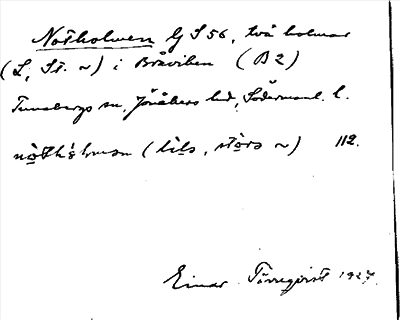 Notholmen G S 56, två holmar
(L, St. ~) i Bråviken (B 2)
Tunabergs sn, Jönåkers hd, Södermanl. l.
(lila, stora ~) 112.
Einar Törnqvist 1927.